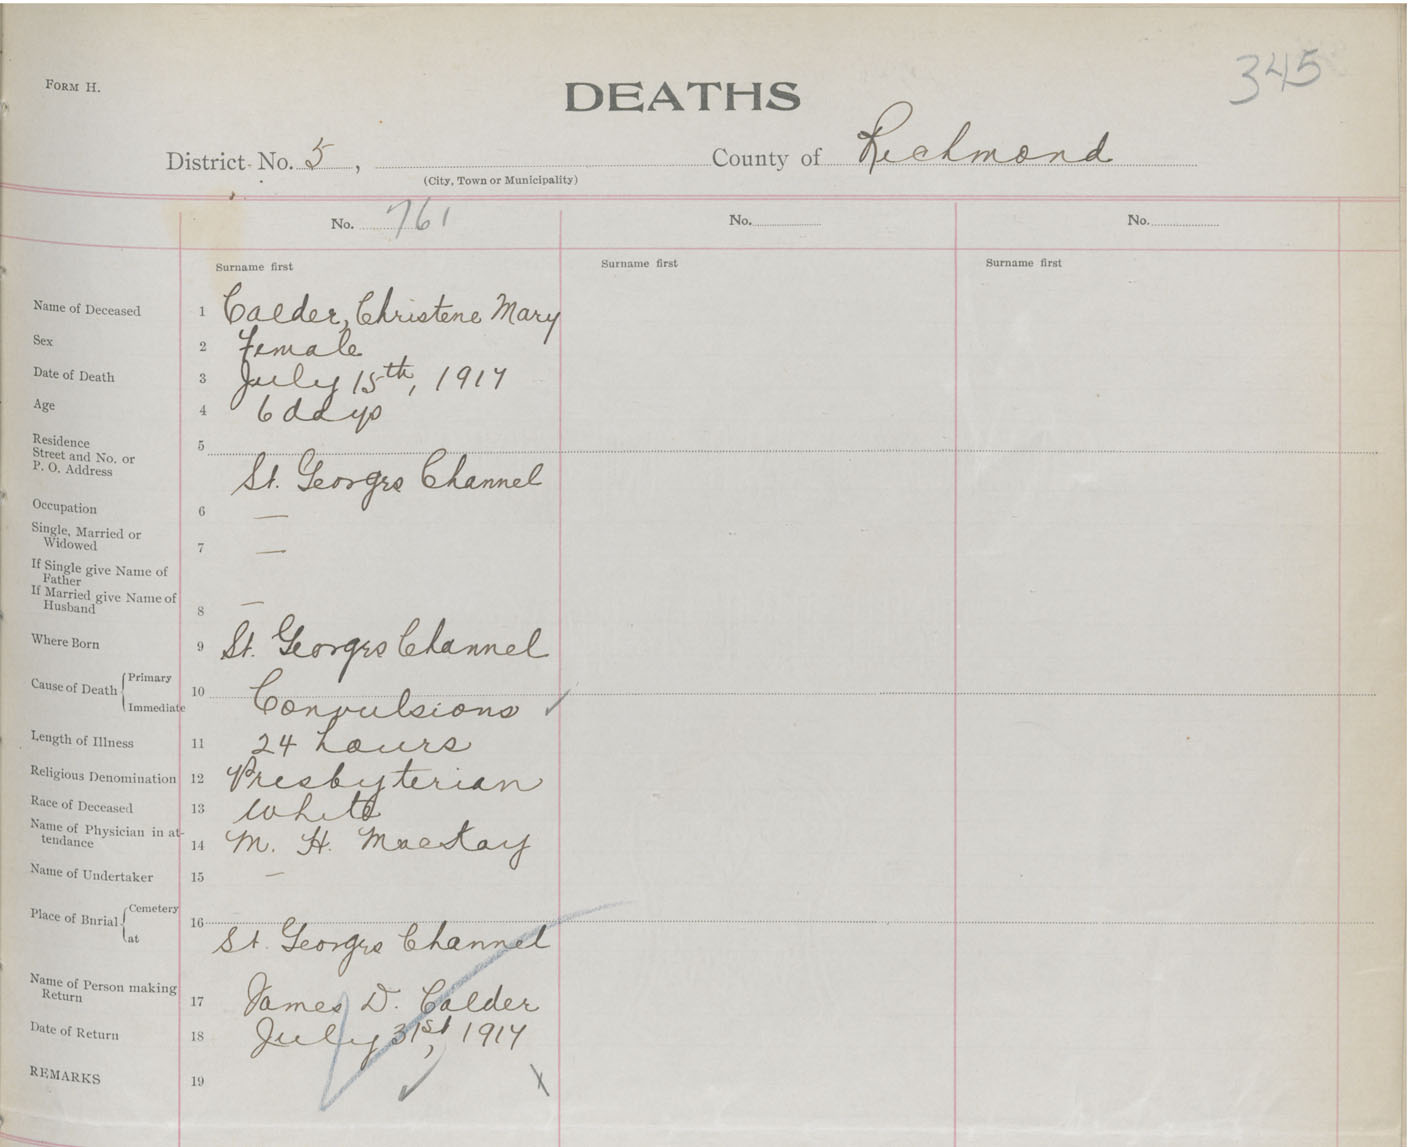 345
FORM H.
DEATHS
District No. 5, County of Richmond
(City, Town or Municipality)
No. 761 No. No.
Surname first Surname first Surname first
Name of Deceased 1 Calder, Christene Mary
Sex 2 Female
Date of Death 3 July 15th, 1914
Age 4 6 days
Residence 5
Street and No. or
P. O. Address St. Georges Channel
Occupation 6 —
Single, Married or
Widowed 7 —
If Single give Name of
Father
If Married give Name of
Husband 8 —
Where Born 9 St. Georges Channel
Cause of Death Primary 10
Immediate Convulsions ✓
Length of Illness 11 24 hours
Religious Denomination 12 Presbyterian
Race of Deceased 13 White
Name of Physician in at-
tendance 14 M. H. MacKay
Name of Undertaker 15 —
Place of Burial Cemetery 16
at St. Georges Channel
Name of Person making
Return 17 James D. Calder
Date of Return 18 July 31st, 1914
REMARKS 19